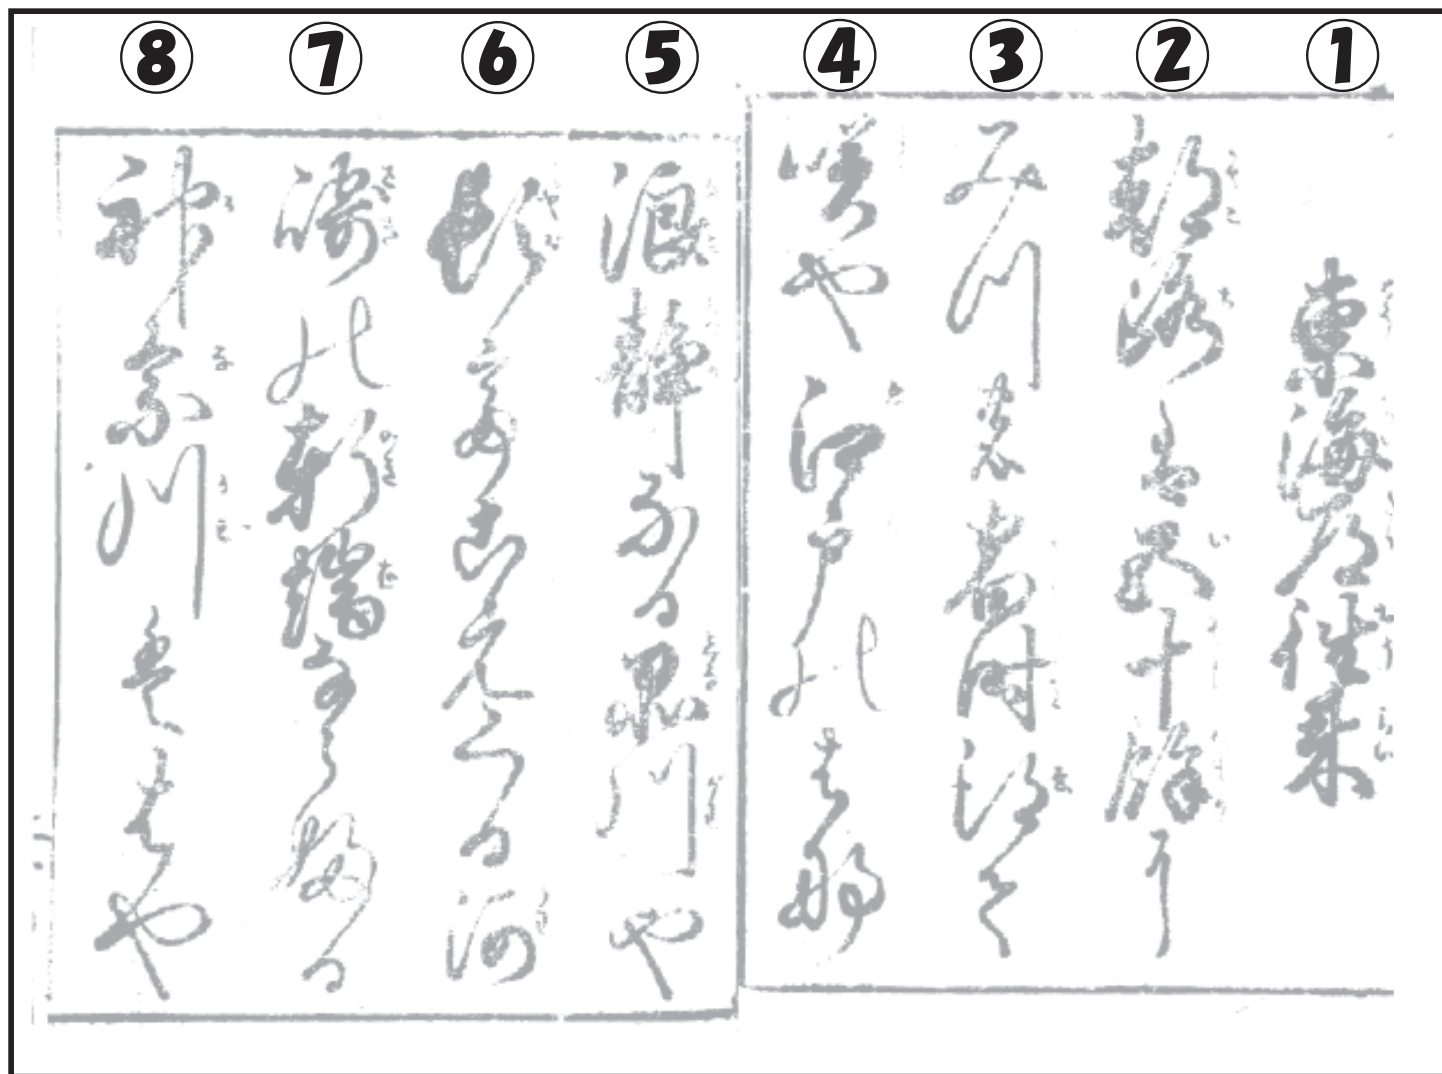 ① 東海道往来
② 都路は五十餘に
③ みつの宿時得て
④ 咲や江戸のはな
⑤ 浪静なる品川や
⑥ 頓てこえくる河
⑦ 崎の軒端ならふる
⑧ 神奈川ははや